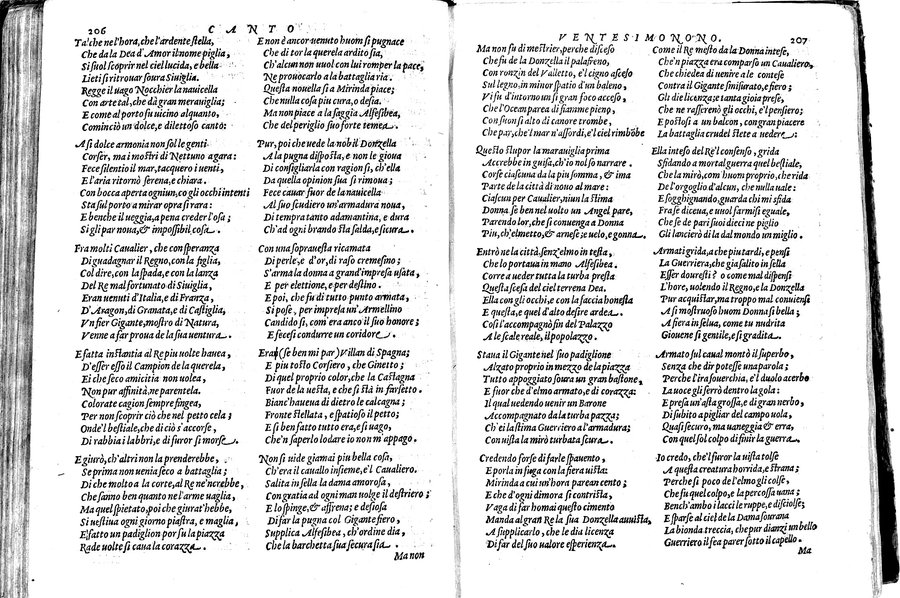 206 CANTO
Tal che nel'hora, che l'ardente stella,
Che da la Dea d'Amor il nome piglia,
Si suol scoprir nel ciel lucida, e bella
Lieti si ritrouar soura Siuiglia.
Regge il uago Nocchier la nauicella
Con arte tal, che dà gran merauiglia;
E come al porto fu uicino alquanto,
Cominciò un dolce, e dilettoso canto:
A sì dolce armonia non sol le genti
Corser, ma i mostri di Nettuno a gara:
Fece silentio il mar, tacquero i uenti,
E l'aria ritornò serena, e chiara.
Con bocca aperta ogniun, co gli occhi intenti
Sta sul porto a mirar opra sì rara:
E benche il ueggia, a pena creder l'osa;
Si gli par noua, & impossibil cosa.
Fra molti Caualier, che con speranza
Di guadagnar il Regno, con la figlia,
Col dire, con la spada, e con la lanza
Del Re mal fortunato di Siuiglia,
Eran uenuti d'Italia, e di Franza,
D'Aragon, di Granata, e di Castiglia,
Vn fier Gigante, mostro di Natura,
Venne a far proua de la sua uentura.
E fatta instantia al Re piu uolte hauea,
D'esser esso il Campion de la querela,
Ei che seco amicitia non uolea,
Non pur affinità, ne parentela.
Colorate cagion sempre fingea,
Per non scoprir ciò che nel petto cela;
Onde'l bestiale, che di ciò s'accorse,
Di rabbia i labbri, e di furor si morse.
E giurò, ch'altri non la prenderebbe,
Se prima non uenia seco a battaglia;
Di che molto a la corte, al Re ne'ncrebbe,
Che sanno ben quanto nel'arme uaglia,
Ma quel spietato, poi che giurat'hebbe,
Si uestiua ogni giorno piastra, e maglia,
E fatto un padiglion por su la piazza
Rade uolte si caua la corazza.
E non è ancor uenuto huom si pugnace
Che di tor la querela ardito sia,
Ch'alcun non uuol con lui romper la pace,
Ne prouocarlo a la battaglia ria.
Questa nouella sì a Mirinda piace;
Che nulla cosa piu cura, o desia.
Ma non piace a la saggia Alfesibea,
Che del periglio suo forte temea.
Pur, poi che uede la nobil Donzella
A la pugna disposta, e non le gioua
Di consigliarla con ragion sì, ch'ella
Da quella opinion sua si rimoua;
Fece cauar fuor de la nauicella
Al suo scudiero un'armadura noua,
Di tempra tanto adamantina, e dura
Ch'ad ogni brando sta salda, e sicura.
Con una soprauesta ricamata
Di perle, e d'or, di raso cremesino;
S'arma la donna a grand'impresa usata,
E per elettione, e per destino.
E poi, che fu di tutto punto armata,
Si pose, per impresa un'Armellino
Candido sì, com'era anco il suo honore;
E fecesi condurre un coridore.
Era (se ben mi par) Villan di Spagna;
E piu tosto Corsiero, che Ginetto;
Di quel proprio color, che la Castagna
Fuor de la uesta, e che si stà in farsetto.
Bianc'hauea di dietro le calcagna;
Fronte stellata, e spatioso il petto;
E si ben fatto tutto era, e sì uago,
Che'n saperlo lodare io non m'appago.
Non si uide giamai piu bella cosa,
Ch'era il cauallo insieme, e'l Caualiero.
Salita in sella la dama amorosa,
Con gratia ad ogni man uolge il destriero;
E lo spinge, & affrena; e desiosa
Di far la pugna col Gigante fiero,
Supplica Alfesibea, ch'ordine dia,
Che la barchetta sua secura sia.
Ma non
VENTESIMONONO. 207
Ma non fu di mestrier, perche disceso
Che fu de la Donzella il palafreno,
Con ronzin del Valletto, e'l cigno asceso
Sul legno, in minor spatio d'un baleno,
Vi fu d'intorno un sì gran foco acceso,
Che l'Ocean parea di fiamme pieno,
Con suon sì alto di canore trombe,
Che par, che'l mar n'assordi, e'l ciel rimbōbe
Questo stupor la marauiglia prima
Accrebbe in guisa, ch'io nol so narrare.
Corse ciascuna da la piu somma, & ima
Parte de la città di nouo al mare:
Ciascun per Caualier, niun la stima
Donna se ben nel uolto un Angel pare,
Parendo lor, che si conuenga a Donna
Piu, ch'elmetto, & arnese; e uelo, e gonna.
Entrò ne la città, senz'elmo in testa,
Che lo portaua in mano Alfesibea.
Corre a ueder tutta la turba presta
Questa scesa del ciel terrena Dea.
Ella con gli occhi, e con la faccia honesta
E questa, e quel d'alto desire ardea.
Così l'accompagnò fin del Palazzo
A le scale reale, il popolazzo.
Staua il Gigante nel suo padiglione
Alzato proprio in mezzo de la piazza
Tutto appoggiato soura un gran bastone,
E fuor che d'elmo armato, e di corazza:
Il qual uedendo uenir un Barone
Accompagnato da la turba pazza;
Ch'ei la stima Guerriero a l'armadura;
Con uista la mirò turbata scura.
Credendo forse di farle spauento,
E porla in fuga con la fiera uista:
Mirinda a cui un'hora parean cento;
E che d'ogni dimora si contrista,
Vaga di far homai questo cimento
Manda al gran Re la sua Donzella auuista,
A supplicarlo, che le dia licenza
Di far del suo ualore esperienza.
Come il Re mesto da la Donna intese,
Che'n piazza era comparso un Caualiero,
Che chiedea di uenire a le contese
Contra il Gigante smisurato, e fiero;
Gli die licenza; e tanta gioia prese,
Che ne rasserenò gli occhi, e'l pensiero;
E postosi a un balcon, con gran piacere
La battaglia crudel stete a uedere.
Ella inteso del Re'l consenso, grida
Sfidando a mortal guerra quel bestiale,
Che la mirò, com'huom proprio, che rida
De l'orgoglio d'alcun, che nulla uale:
E sogghignando, guarda chi mi sfida
Frase diceua, e uuol farmisi eguale,
Che se de par suoi dieci ne piglio
Gli lancierò di la dal mondo un miglio.
Armati grida, a che piu tardi, e pensi
La Guerriera, che gia salito in sella
Esser douresti? o come mal dispensi
L'hore, uolendo il Regno, e la Donzella
Pur acquistar, ma troppo mal conuiensi
A sì mostruoso huom Donna sì bella;
A fiera in selua, come tu nudrita
Giouene sì gentile, e sì gradita.
Armato sul caual montò il superbo,
Senza che dir potesse una parola;
Perche l'ira souerchia, e'l duolo acerbo
La uoce gli serrò dentro la gola:
E presa un'asta grossa, e di gran nerbo,
Di subito a pigliar del campo uola,
Quasi securo, ma uaneggia & erra,
Con quel sol colpo di finir la guerra.
Io credo, che'l furor la uista tolse
A questa creatura horrida, e strana;
Perche si poco de l'elmo gli colse,
Che fu quel colpo, e la percossa uana;
Bench'ambo i lacci le ruppe, e disciolse;
E sparse al ciel de la Dama sourana
La bionda treccia, che pur dianzi un bello
Guerriero il fea parer sotto il capello.
Ma